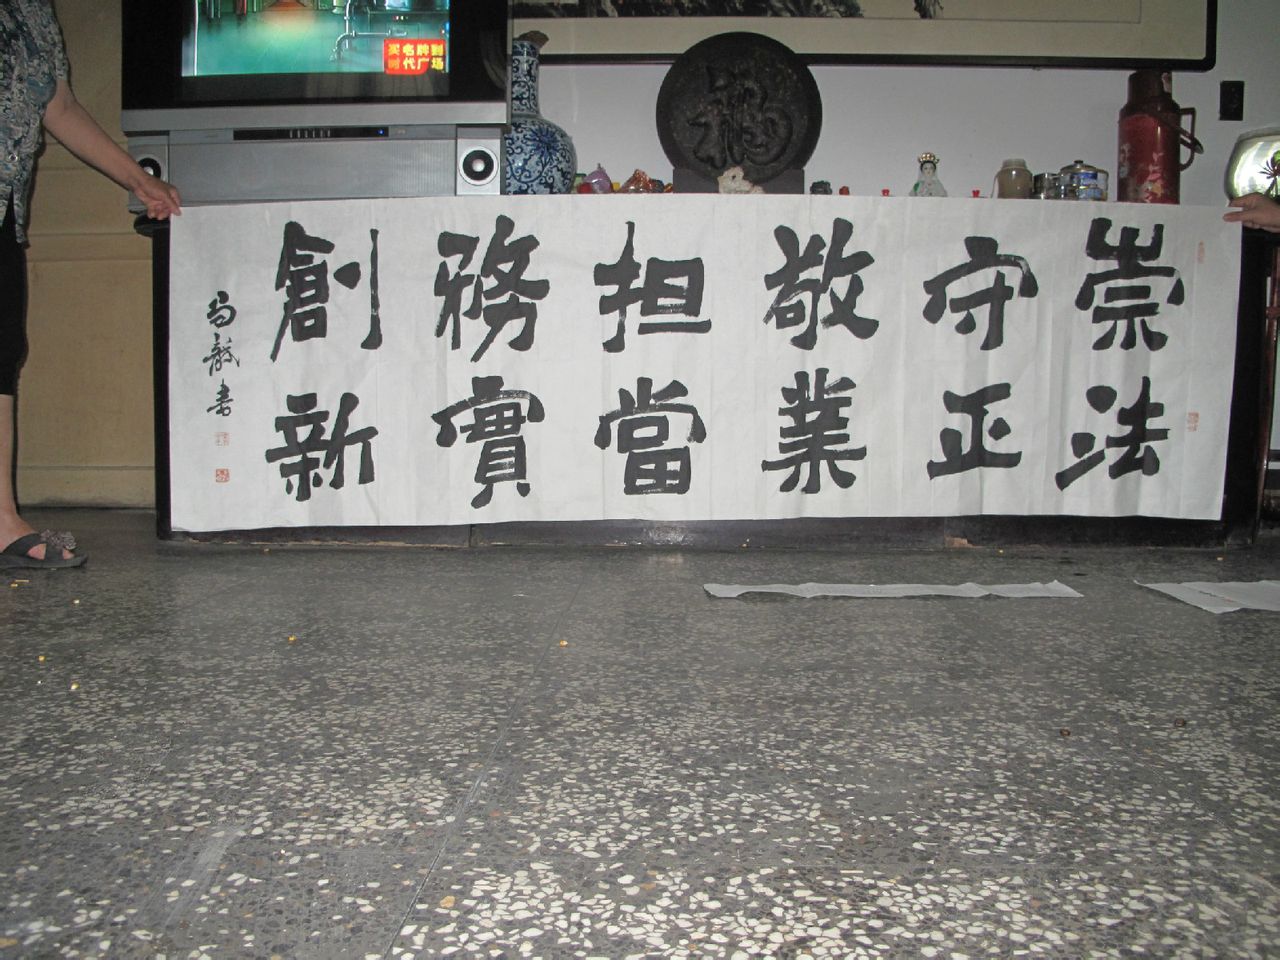 买名牌到
时代广场
福
崇法
守正
敬業
担當
務實
創新
尚毅书